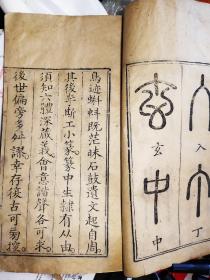 入
丁
玄
中
鳥迹蝌蚪既茫昧石鼓遺文起自周
其後李斯工小篆篆中生隸有从由
須知六體深藏義會意諧聲各可求
後世偏旁多舛謬幸存復古可搜